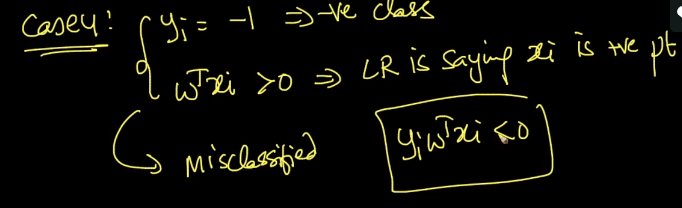 Case4: yi = -1 ⇒ -ve class
wᵀxi >0 ⇒ LR is saying xi is +ve pt
misclassified
yiwᵀxi <0